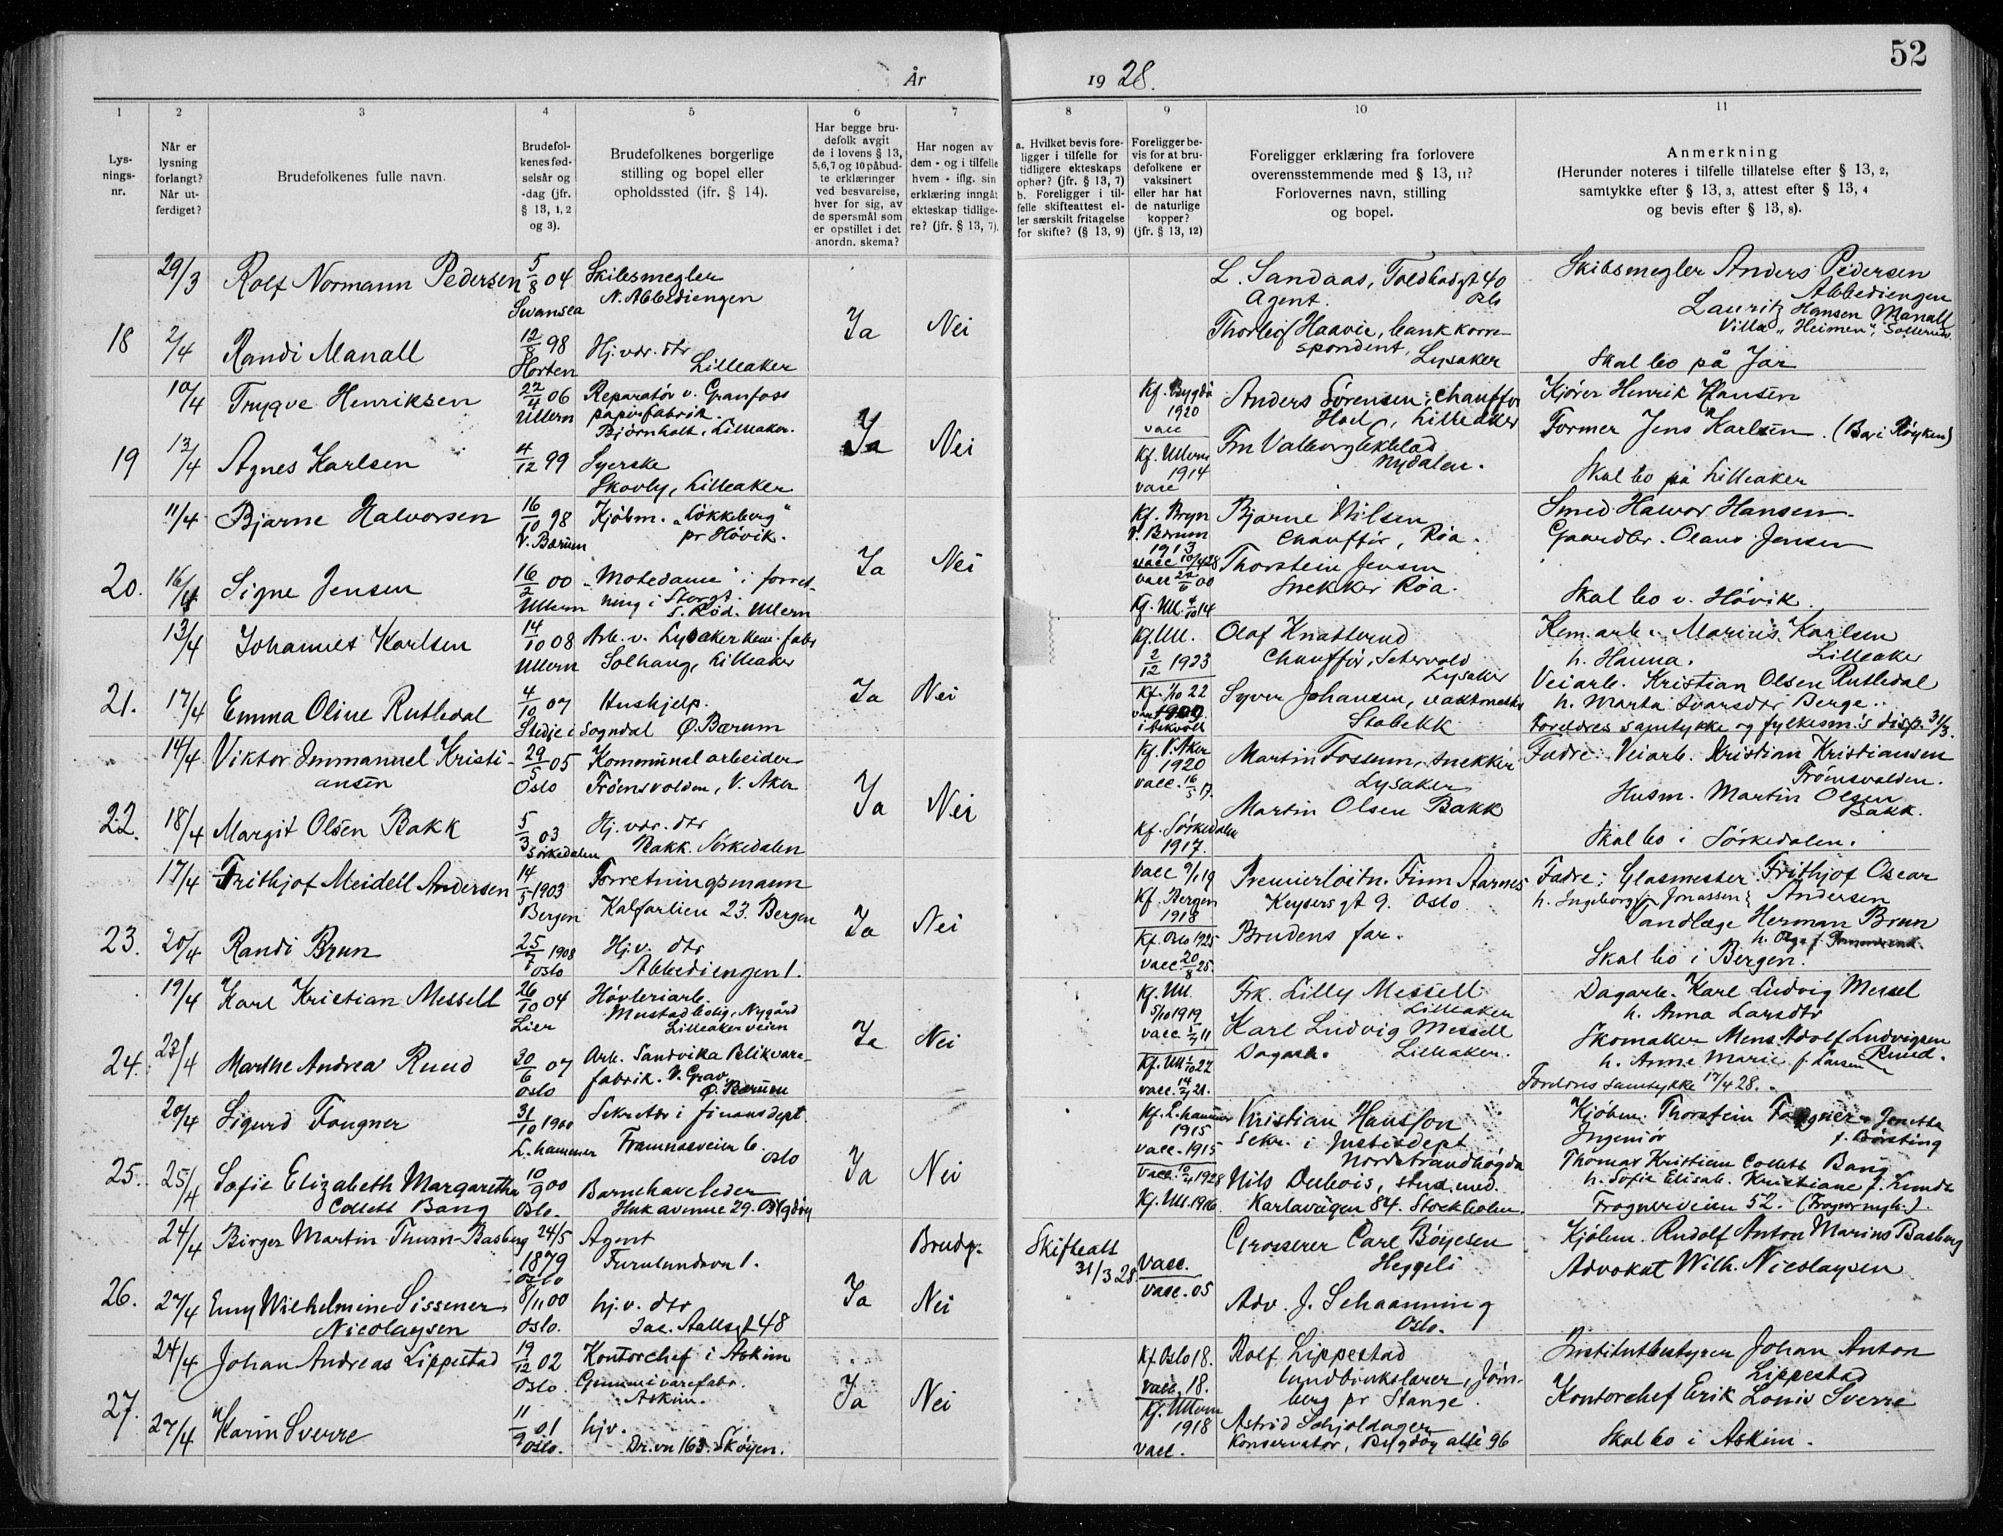 52
År 1928.
1 2 3 4 5 6 7 8 9 10 11
Lys-
nings-
nr.
Når er
lysning
forlangt?
Når ut-
ferdiget?
Brudefolkenes fulle navn.
Brudefol-
kenes fød-
selsår og
-dag (jfr.
§ 13, 1, 2
og 3).
Brudefolkenes borgerlige
stilling og bopel eller
opholdssted (jfr. § 14).
Har begge bru-
defolk avgit
de i lovens § 13,
5,6,7 og 10 påbud-
te erklæringer
ved besvarelse,
hver for sig, av
de spørsmål som
er opstillet i det
anordn. skema?
Har nogen av
dem - og i tilfelle
hvem - iflg. sin
erklæring inngått
ekteskap tidlige-
re? (jfr. § 13, 7).
a. Hvilket bevis fore-
ligger i tilfelle for
tidligere ekteskaps
ophør? (jfr. § 13, 7)
b. Foreligger i til-
felle skifteattest el-
ler særskilt fritagelse
for skifte? (§ 13, 9)
Foreligger be-
vis for at bru-
defolkene er
vaksinert
eller har hat
de naturlige
kopper?
(jfr. § 13, 12)
Foreligger erklæring fra forlovere
overensstemmende med § 13, 11?
Forlovernes navn, stilling
og bopel.
Anmerkning
(Herunder noteres i tilfelle tillatelse efter § 13, 2,
samtykke efter § 13, 3, attest efter § 13, 4
og bevis efter § 13, 8).
29/3 Rolf Normann Pedersen 5/8 04 Swansea Skibsmegler N. Abbediengen
L. Sandaas, Toldbodgt 40 Oslo Agent.
Skibsmegler Anders Pedersen Abbediengen
18 2/4 Randi Manall 12/8 98 Horten Hj.vær. dtr Lilleaker Ja Nei
Thorleif Haavie, bankkorre-
spondent, Lysaker
Lauritz Hansen Manall
Villa "Heimen", Sollerud.
Skal bo på Jar
10/4 Trygve Henriksen 22/4 06 Ullern Reparatør v. Granfoss
papirfabrik.
Bjørnholt, Lilleaker.
Kf. Bygdø 1920 vacc
Anders Sørensen, chauffør
Hoel, Lilleaker
Kjører Henrik Hansen
19 13/4 Agnes Karlsen 4/12 99 Syerske
Skovly, Lilleaker Ja Nei
Kf. Ullern 1914 vacc
Fru Valborg Ekblad
Nydalen.
Former Jens Karlsen. (Bor i Røyken)
Skal bo på Lilleaker
11/4 Bjarne Halvorsen 16/10 98 V. Bærum Kjøbm. "Løkkeberg"
pr Høvik.
Kf. Bryn V. Bærum 1913 vacc 10/4 28
Bjarne Nilsen
Chauffør, Røa.
Smed Halvor Hansen.
20. 16/4 Signe Jensen 16/2 00 Ullern "Motedame" i forret-
ning i Storgt.
s. Rød. Ullern Ja Nei
vacc 22/6 00
Kf. Ull. 4/10 14
Thorstein Jensen
Snekker Røa.
Gaardbr. Olaus Jensen
Skal bo v. Høvik.
13/4 Johannes Karlsen 14/10 08 Ullern Arb. v. Lysaker kem. fabr
Solhaug, Lilleaker
Kf. Ull. 2/12 1923
Olaf Knatterud
Chauffør, Lysaker
Kem. arb. Marius Karlsen
h. Hanna. Lilleaker
21. 17/4 Emma Oline Rutledal 4/10 07 Stedje i Sogndal Hushjelp.
Ø. Bærum Ja Nei
Kf. 1/10 22
i Askvoll
Syver Johansen, vaktmester
Stabekk
Veiarb. Kristian Olsen Rutledal
h. Marta Ivarsdtr Berge.
Foreldres samtykke og fylkesm.s disp. 31/3.
14/4 Viktor Immanuel Kristi-
ansen 29/5 05 Oslo Kommunalarbeider
Frøensvolden, V. Aker
Kf. V. Aker 1920
vacc. 16/5 17.
Martin Fossum, snekker
Lysaker
Fadre: Veiarb. Kristian Kristiansen
Frøensvolden.
22. 18/4 Margit Olsen Bakk 5/3 03 Sørkedalen Hj. vær. dtr
Bakk. Sørkedalen Ja Nei
Kf. Sørkedalen 1917.
Martin Olsen Bakk
Husm. Martin Olsen
Bakk.
Skal bo i Sørkedalen.
17/4 Frithjof Meidell Andersen 14/5 1903 Bergen Forretningsmann
Kalfarlien 23. Bergen
vacc 9/1 19
Kf. Bergen 1918
Premierløitn. Finn Aarnes
Keysers gt 9. Oslo.
Fadre: Glasmester Frithjof Oscar
h. Ingeborg f. Jonassen Andersen
23. 20/4 Randi Brun 25/7 1908 Oslo Hj.v. dtr
Abbediengen 1. Ja Nei
Kf. Oslo 1925
vacc 20/8 25.
Brudens far.
Tandlæge Herman Brun
Skal bo i Bergen.
19/4 Karl Kristian Messelt 26/10 04 Lier Høvleriarb.
Mustad bolig, Nygård
Lilleakerveien
Kf. Ull. 5/10 1919
vacc 5/7 11
Frk. Lilly Messell
Lilleaker
Dagarb. Karl Ludvig Messel
h. Anna Larsdtr
24. 23/4 Marthe Andrea Ruud 30/6 07 Oslo Arb. Sandvika Blikvare-
fabrik. V. Grav,
Ø. Bærum Ja Nei
Kf. Ull 1/10 22
vacc. 14/7 21.
Karl Ludvig Messell
Dagarb. Lilleaker.
Skomaker Mens Adolf Ludvigsen
h. Anne Marie f. Larsen Ruud.
Foreldres samtykke 17/4 28.
20/4 Sigurd Fougner 31/10 1900 L.hammer Sekretær i finansdept.
Framnæsveien 6. Oslo
Kf. L.hammer 1915
vacc. 1915
Kristian Hansson
Sekr. i Justisdept
Nordstrandhøgda
Kjøbm. Thorstein Fougner - Jenette
f. Børsting
25. 25/4 Sofie Elizabeth Margaretha
Collett Bang 10/9 00 Oslo. Barnehaveleder
Huk avenue 29. Bygdøy Ja Nei
vacc. 10/4 1928
Kf. Ull. 1916.
Nils Dubois, stud. med.
Karlavägen 84. Stockholm.
Ingeniør
Thomas Kristian Collett Bang
h. Sofie Elisab. Kristiane f. Lund
Frognerveien 52. (Frogner mgh.).
24/4 Birger Martin Thurn-Basberg 24/5 1879 Oslo Agent
Furulundsvn 1. Brudg.
Skifteatt 31/3 28
vacc.
Grosserer Carl Bøyesen
Heggeli
Kjøbm. Rudolf Anton Marius Basberg
26. 27/4 Emy Wilhelmine Sissener
Nicolaysen 8/11 00 Oslo. hj.v. dtr
Jac. Aallsgt 48 Ja Nei
vacc. 05
Adv. J. Schaanning
Oslo.
Advokat Wilh. Nicolaysen
24/4 Johan Andreas Lippestad 19/12 02 Oslo. Kontorchef i Askim
Gummivarefabr.
Askim.
Kf. Oslo 18.
vacc. 18.
Rolf Lippestad
landbrukslærer, Jøns-
berg pr Stange.
Institutbestyrer Johan Anton
Lippestad
27. 27/4 Karin Sverre 11/9 01 Oslo. hjv.
Dr.vn 163. Skøyen. Ja Nei
Kf. Ullern 1918
vacc.
Astrid Schjoldager
Konservator, Bygdøy allé 96
Kontorchef Erik Louis Sverre
Skal bo i Askim.